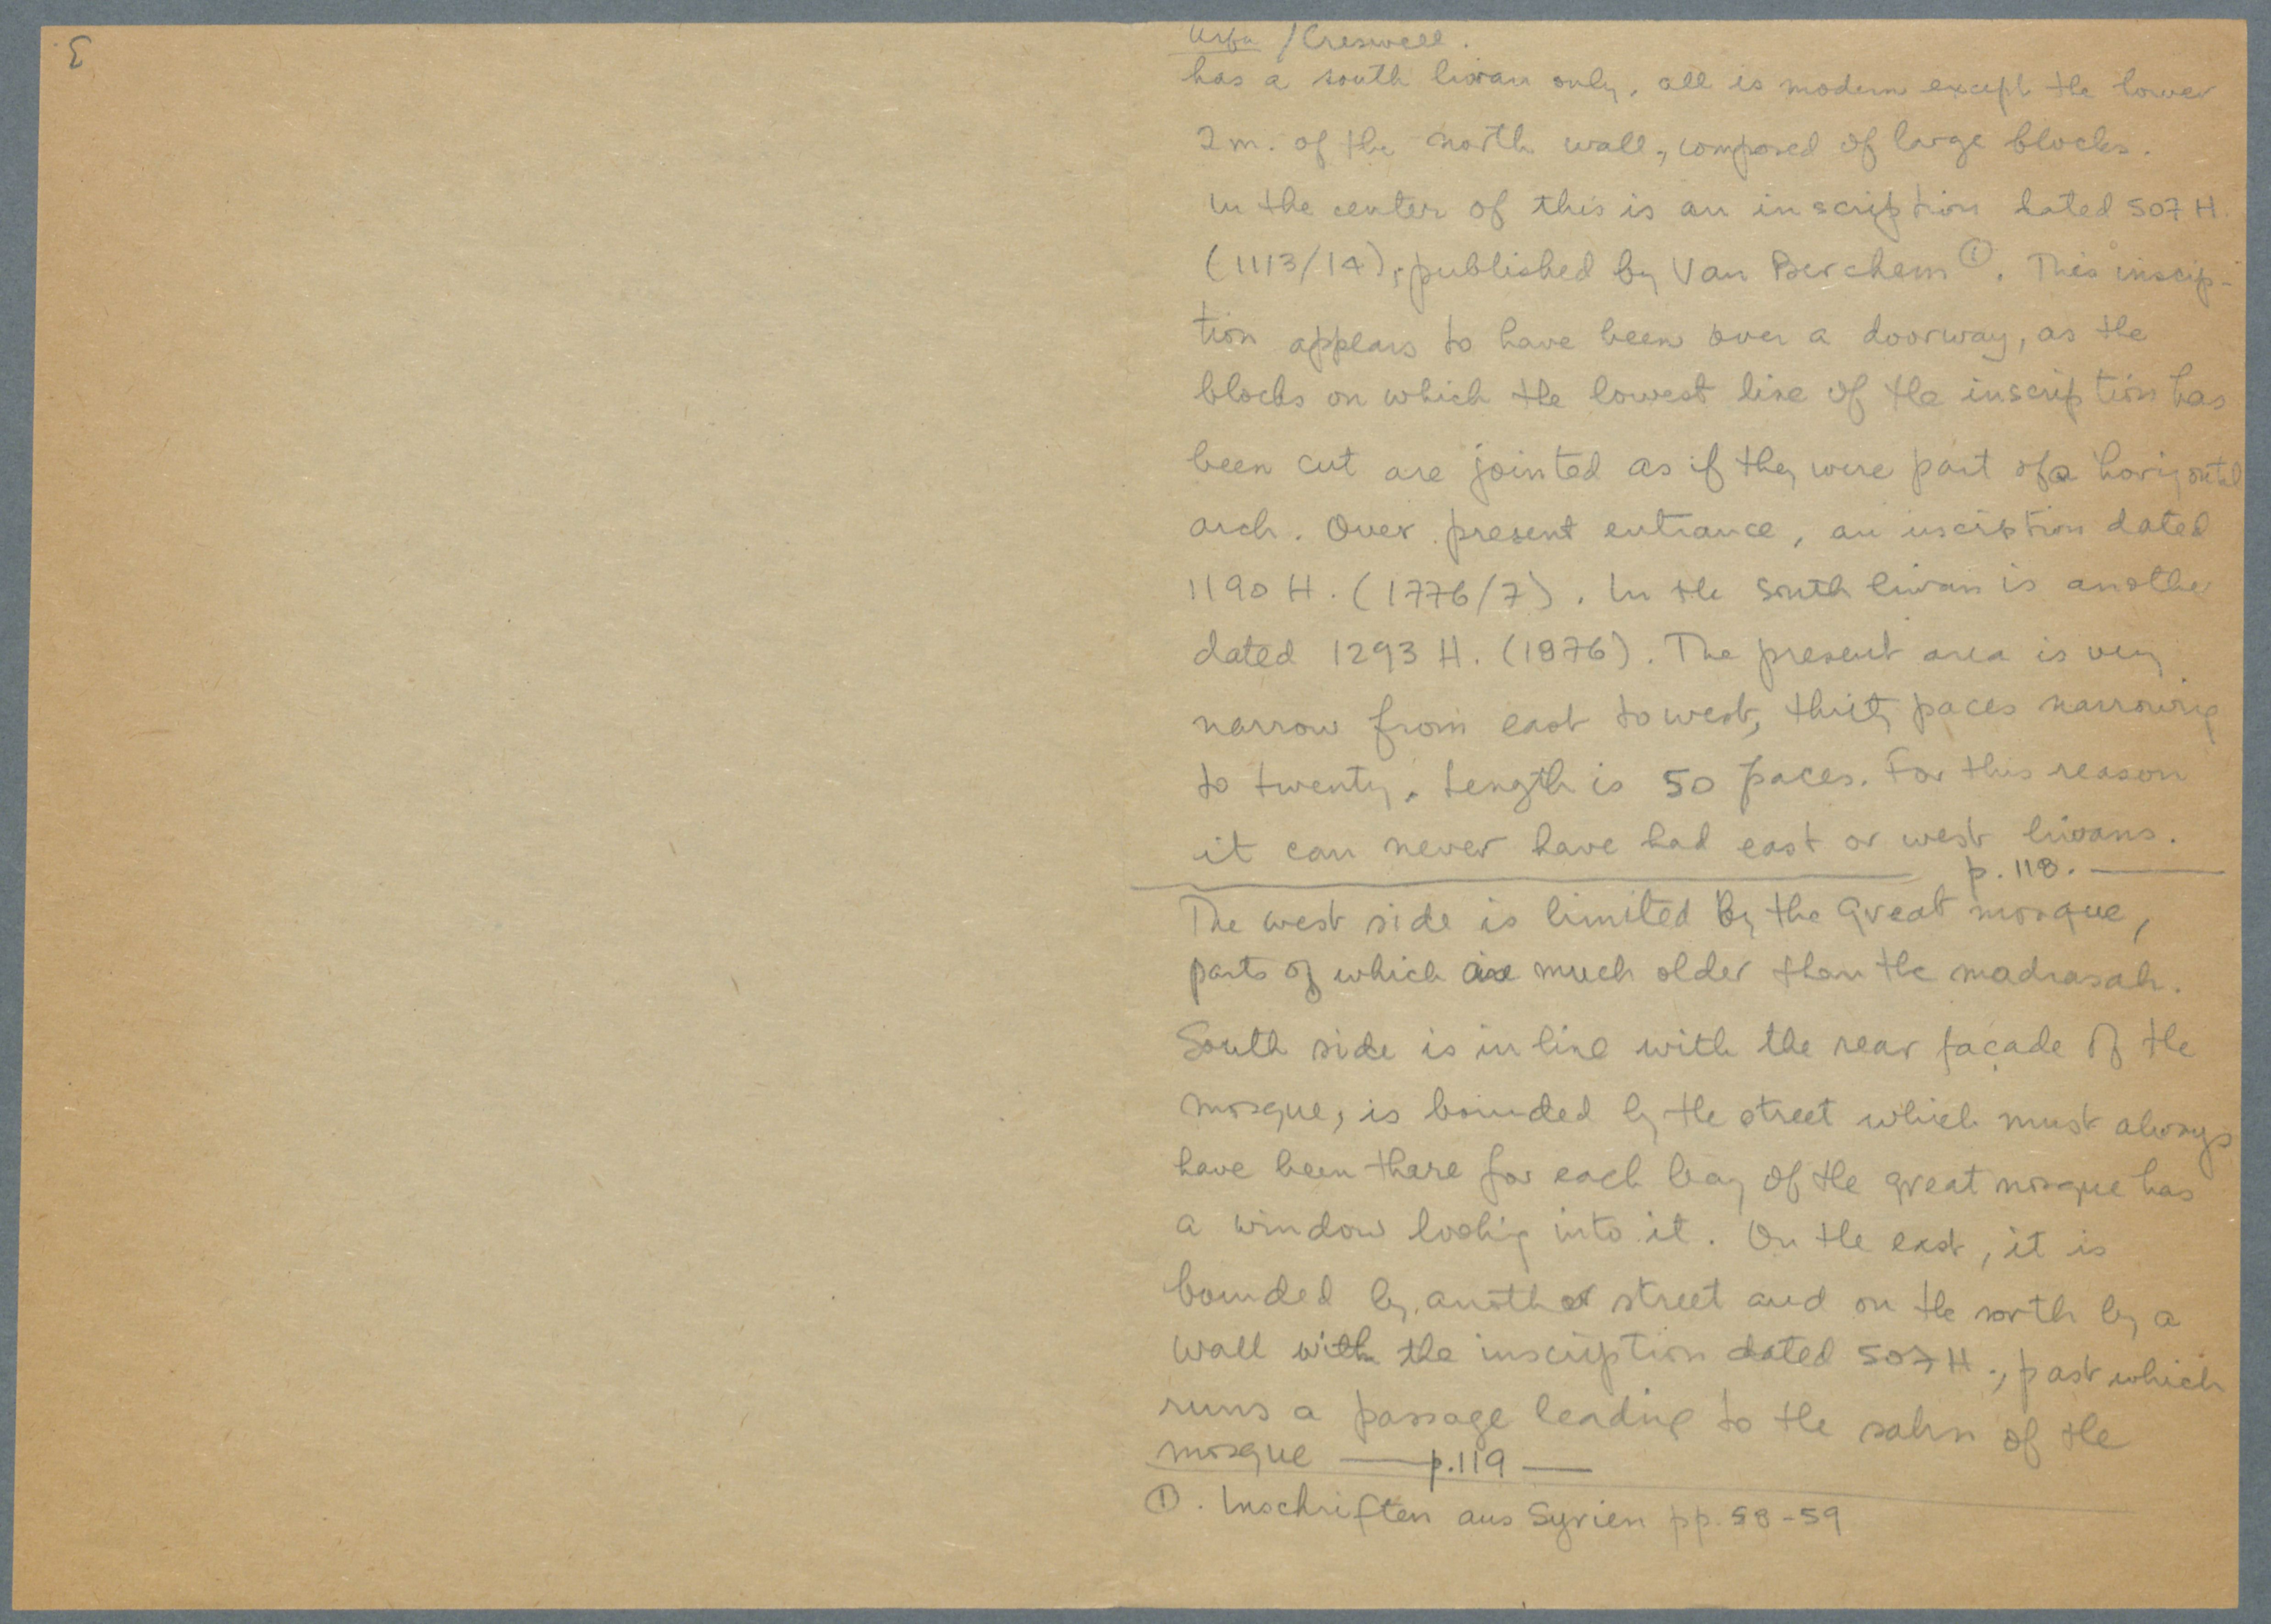 ع
Urfa / Creswell.
has a south liwan only, all is modern except the lower
2 m. of the north wall, composed of large blocks.
In the center of this is an inscription dated 507 H.
(1113/14), published by Van Berchem ①. This inscip-
tion appears to have been over a doorway, as the
blocks on which the lowest line of the inscription has
been cut are jointed as if they were part of a horizontal
arch. Over present entrance, an inscription dated
1190 H. (1776/7). In the south liwan is another
dated 1293 H. (1876). The present area is very
narrow from east to west, thirty paces narrowing
to twenty. Length is 50 paces. For this reason
it can never have had east or west liwans.
p. 118.
The west side is limited by the great mosque,
parts of which are much older than the madrasah.
South side is in line with the rear façade of the
mosque, is bounded by the street which must always
have been there for each bay of the great mosque has
a window looking into it. On the east, it is
bounded by another street and on the north by a
wall with the inscription dated 507 H., past which
runs a passage leading to the sahn of the
mosque — p. 119 —
①. Inschriften aus Syrien pp. 58-59